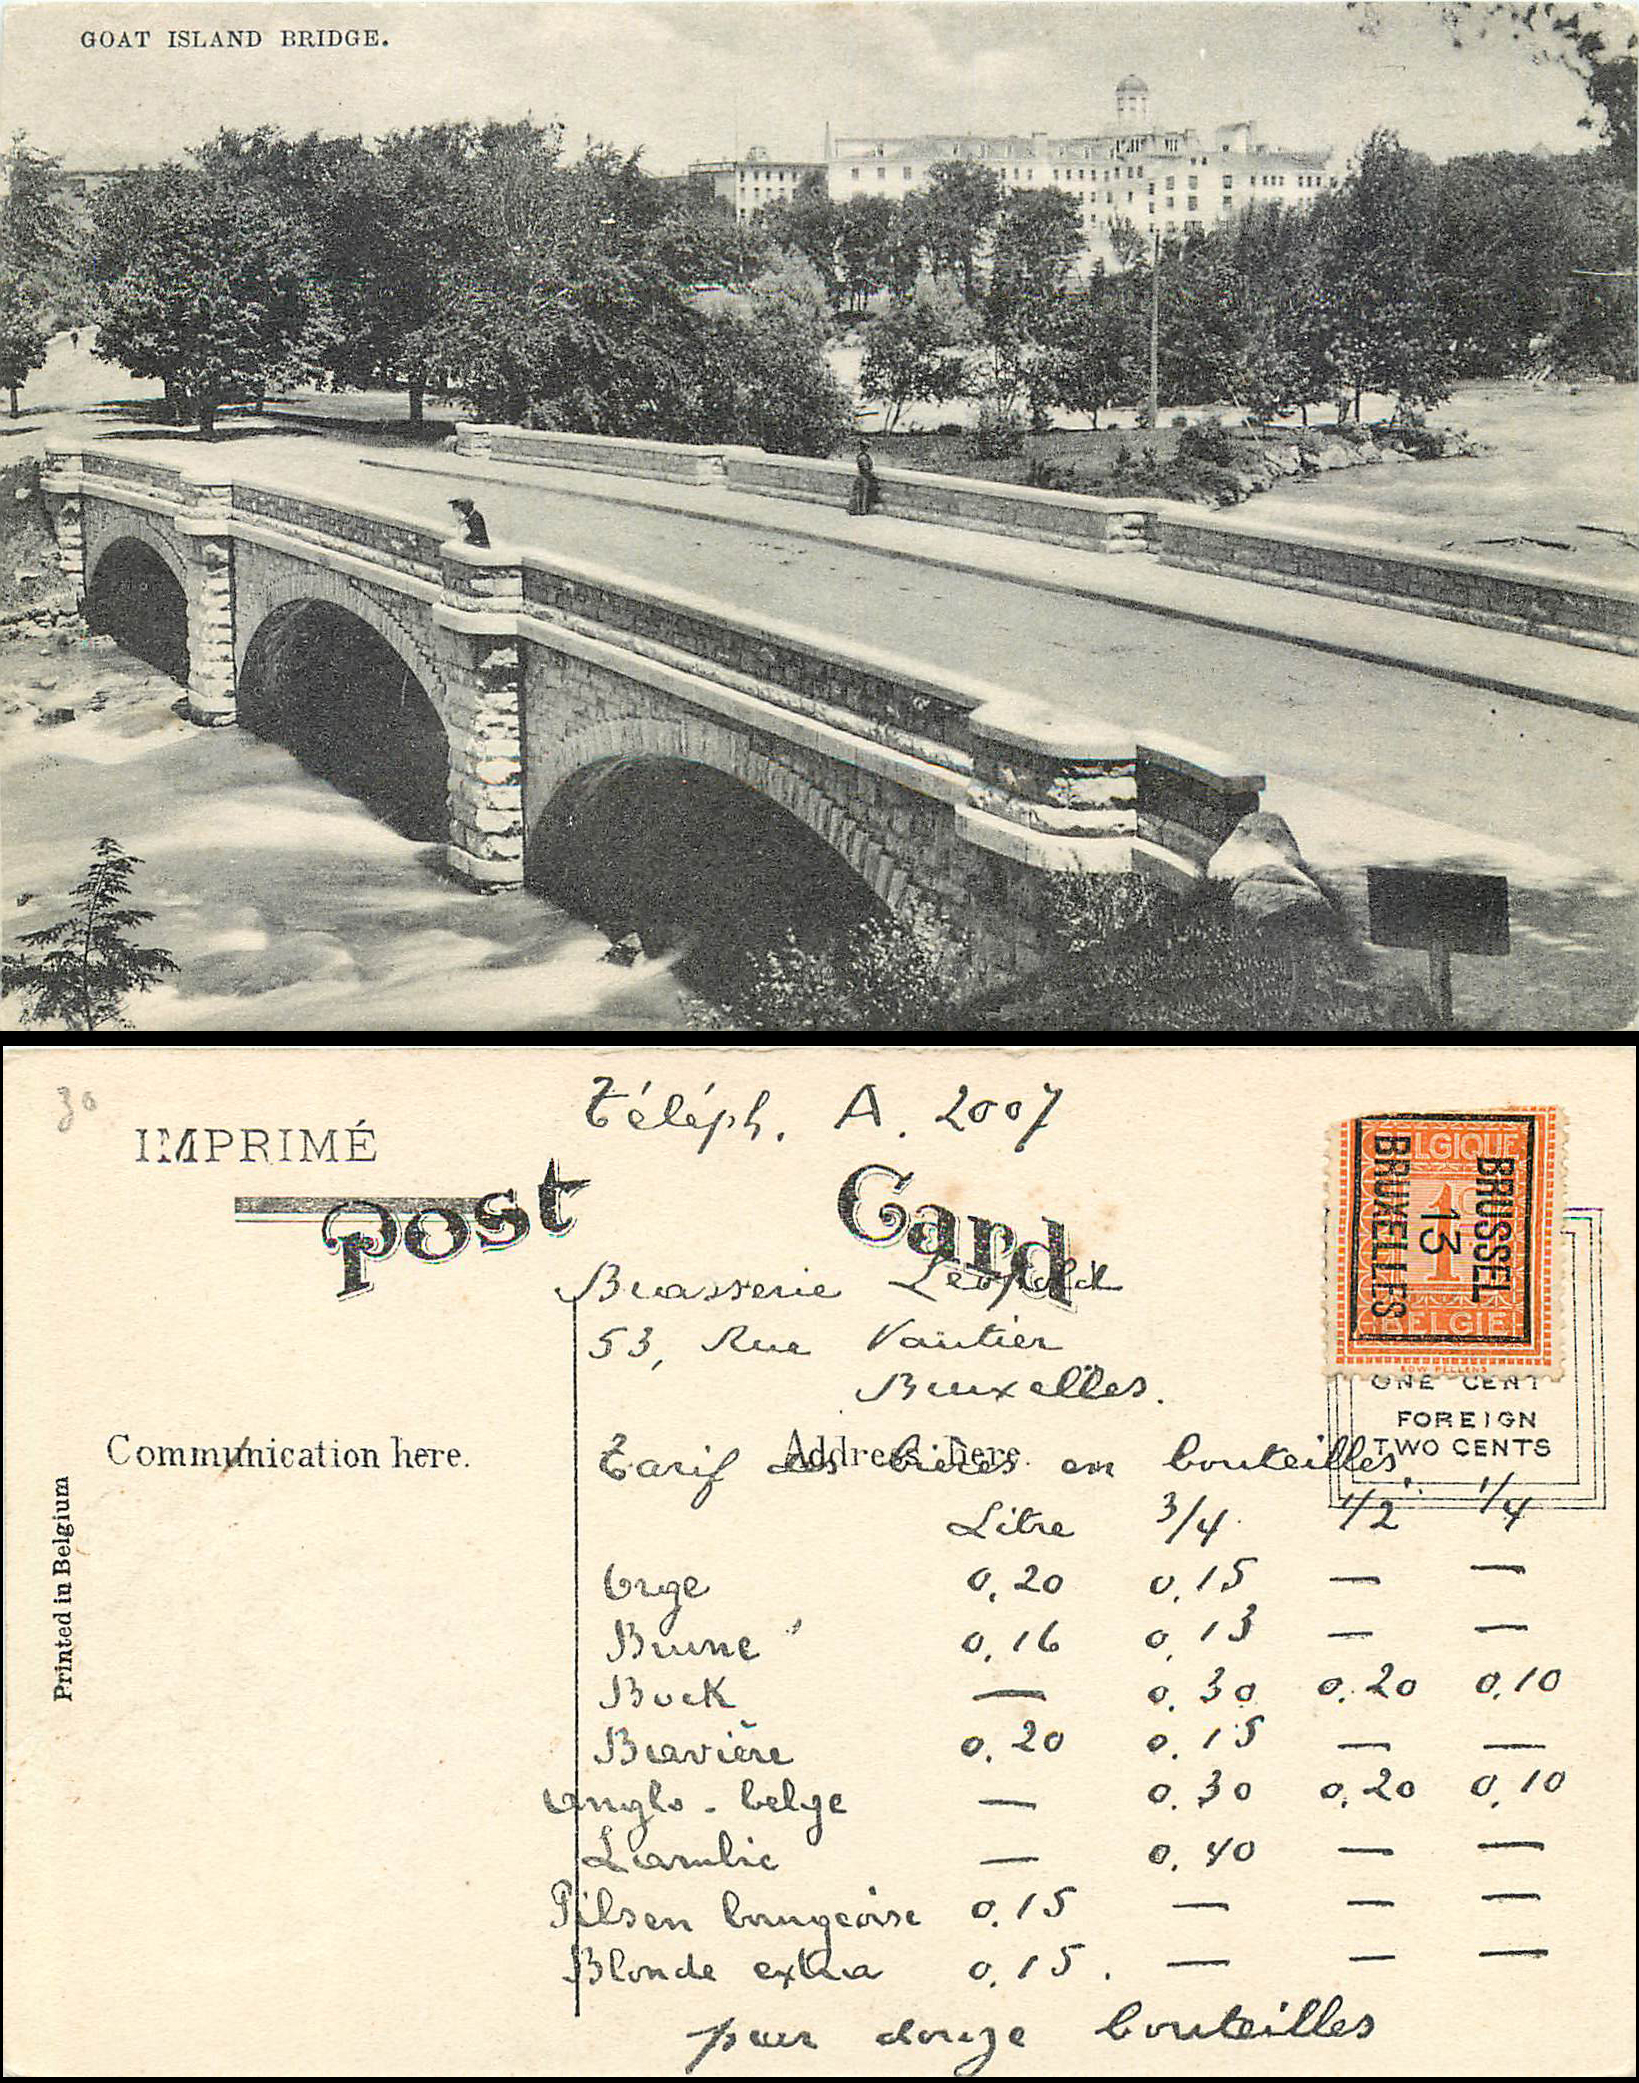 GOAT ISLAND BRIDGE.
30
Téléph. A. 2007
IMPRIMÉ
Post Card
BELGIQUE
1c
BELGIË
EDW PELLENS
BRUSSEL
13
BRUXELLES
Brasserie Léopold
53, Rue Vautier
Bruxelles.
ONE CENT
FOREIGN
TWO CENTS
Communication here.
Address here.
Tarif des bières en bouteilles.
Litre 3/4 1/2 1/4
Orge 0,20 0,15 — —
Brune 0,16 0,13 — —
Bock — 0,30 0,20 0,10
Bavière 0,20 0,15 — —
Anglo-belge — 0,30 0,20 0,10
Lambic — 0,40 — —
Pilsen bourgeoise 0,15 — — —
Blonde extra 0,15. — — —
par douze bouteilles
Printed in Belgium